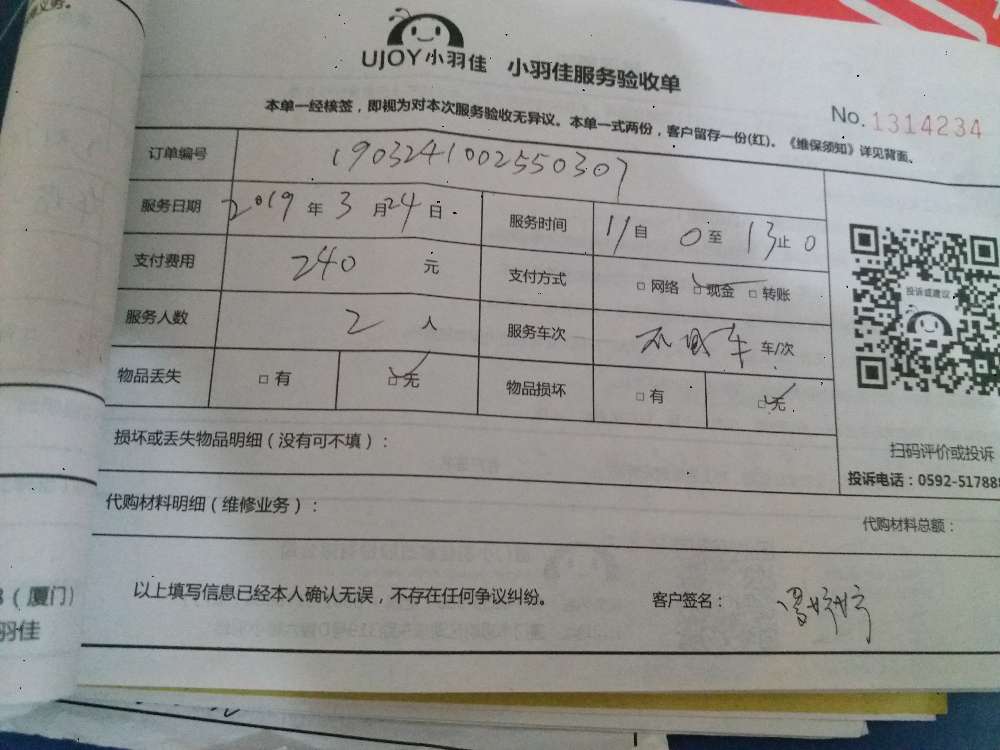 UJOY小羽佳 小羽佳服务验收单
No.1314234
本单一经核签，即视为对本次服务验收无异议。本单一式两份，客户留存一份(红)。《维保须知》详见背面。
订单编号 1903241002550307
服务日期 2019 年 3 月 24 日 服务时间 11 自 0 至 13 止 0
支付费用 240 元 支付方式 □ 网络 □ 现金 □ 转账
投诉或建议
服务人数 2 人 服务车次 车/次
物品丢失 □ 有 □ 无 物品损坏 □ 有 □ 无
扫码评价或投诉
损坏或丢失物品明细（没有可不填）：
投诉电话：0592-51788
代购材料明细（维修业务）：
代购材料总额：
以上填写信息已经本人确认无误，不存在任何争议纠纷。 客户签名： 婷婷
（厦门）
羽佳